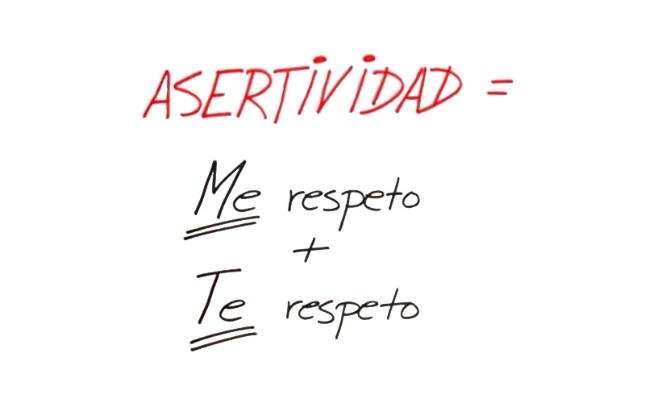 ASERTiViDAD =
Me respeto
+
Te respeto